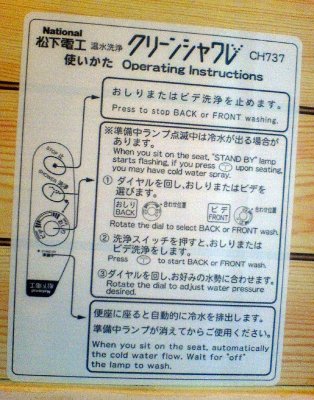 National
松下電工 温水洗浄 クリーンシャワレ CH737
使いかた Operating Instructions
おしりまたはビデ洗浄を止めます。
Press to stop BACK or FRONT washing.
※準備中ランプ点滅中は冷水が出る場合が
あります。
When you sit on the seat, "STAND BY" lamp
starts flashing, if you press upon seating,
you may have cold water spray.
① ダイヤルを回し、おしりまたはビデを
選びます。
おしり BACK 合わせ位置 ビデ FRONT 合わせ位置
Rotate the dial to select BACK or FRONT wash.
② 洗浄スイッチを押すと、おしりまたは
ビデ洗浄をします。
Press to start BACK or FRONT wash.
③ダイヤルを回し、お好みの水勢に合わせます。
Rotate the dial to adjust water pressure
desired.
便座に座ると自動的に冷水を排出します。
準備中ランプが消えてからご使用ください。
When you sit on the seat, automatically
the cold water flow. Wait for "off"
the lamp to wash.
STOP
SHOWER
National
松下電工